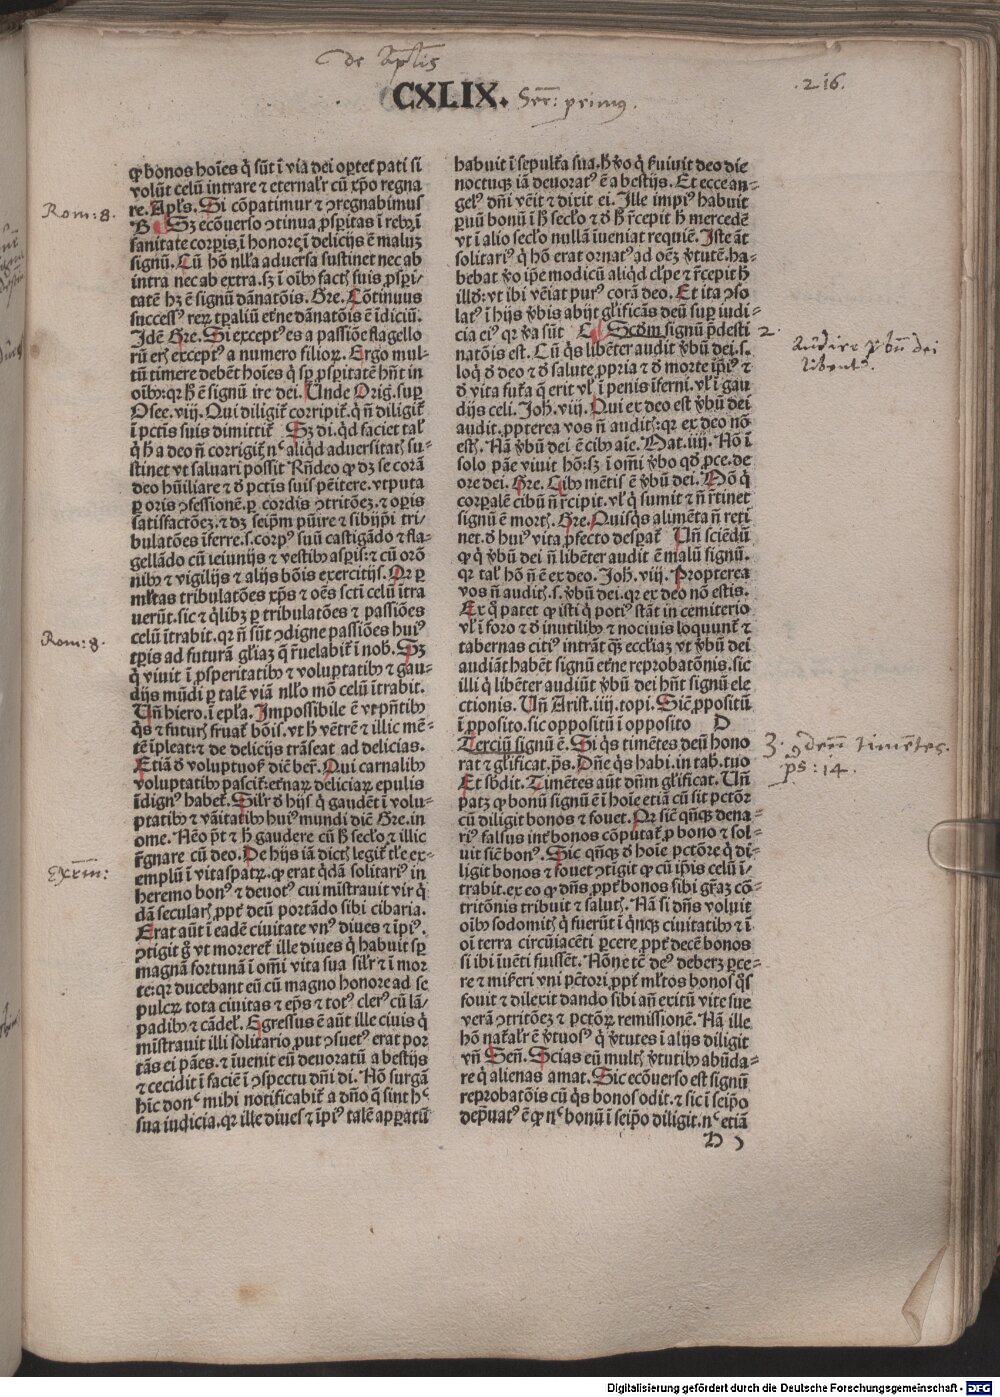 de Apl̃is
CXLIX. Ser̃: primꝰ.
.216.
ꝙ bonos hoı̃es q̇ sũt ĩ via dei oꝑtet pati si
volũt celũ intrare ⁊ eternalr̃ cũ xp̃o regna
re. Apl̃s. Si cõpatimur ⁊ ꝯregnabimus
B Sꝫ ecõuerso ꝯtinua ꝓsꝑitas ĩ rebꝫ ĩ
sanitate corꝑis, ĩ honore, ĩ delicijs ẽ maluꝫ
signũ. Cũ hõ nl̃la aduersa sustinet nec ab
intra nec ab extra. sꝫ ĩ oı̃bꝫ factꝭ suis ꝓsꝑi⸗
tatẽ hꝫ ẽ signũ dãnatõis. Gre. Cõtinuus
successꝰ reꝝ tꝑaliũ etꝰne dãnatõis ẽ ĩdiciũ.
Idẽ Gre. Si exceptꝰ es a passiõe flagello
rũ erꝭ exceptꝰ a numero filioꝝ. Ergo mul⸗
tũ timere debẽt hoı̃es q̇ sꝑ ꝓsꝑitatẽ hñt in
oı̃bꝫ: qꝛ h̃ ẽ signũ ire dei. Unde Orig. suꝑ
Osee. viij. Qui diligit᷑ corripit᷑. q̇ ñ diligit᷑
ĩ pctı̃s suis dimittit᷑ Sꝫ di. qd̃ faciet tal̃
q̇ h̃ a deo ñ corrigit᷑ nᶜ aliqd̃ aduersitatꝭ su⸗
stinet vt saluari possit Rñdeo ꝙ dꝫ se corã
deo hũiliare ⁊ ꝺ pctı̃s suis pẽitere. vtputa
ꝑ oris ꝯfessionẽ. ꝑ cordis ꝯtritõeꝫ. ⁊ oꝑis
satisfactõeꝫ. ⁊ dꝫ seip̃m pũire ⁊ sibijp̃i tri⸗
bulatões ĩferre. s. corpꝰ suũ castigãdo ⁊ fla⸗
gellãdo cũ ieiunijs ⁊ vestibꝫ asꝑis: ⁊ cũ orõ
nibꝫ ⁊ vigilijs ⁊ alijs bõis exercitijs. Qꝛ ꝑ
ml̃tas tribulatões xp̃s ⁊ oẽs scti celũ ĩtra
uerũt. sic ⁊ q̇libꝫ ꝑ tribulatões ⁊ passiões
celũ ĩtrabit. qꝛ ñ sũt ꝯdigne passiões huiꝰ
tꝑis ad futurã gl̃iaꝫ q̃ r̃uelabit᷑ ĩ nob̃. Sꝫ
q̇ viuit ĩ ꝓsperitatibꝫ ⁊ voluptatibꝫ ⁊ gau⸗
dijs mũdi ꝑ talẽ viã nl̃lo mõ celũ ĩtrabit.
Uñ hiero. ĩ epl̃a. Impossibile ẽ vt pñtibꝫ
q̇s ⁊ futurꝭ fruat᷑ bõis. vt h̃ vẽtrẽ ⁊ illic mẽ⸗
tẽ ĩpleat: ⁊ de delicijs trãseat ad delicias.
Etiã ꝺ voluptuosꝭ diẽ ber̃. Qui carnalibꝫ
voluptatibꝫ pascit᷑: etꝰnaꝝ deliciaꝝ epulis
ĩdignꝰ habet᷑. Silr̃ ꝺ hijs q̇ gaudẽt ĩ volu⸗
ptatibꝫ ⁊ vãitatibꝫ huiꝰ mundi diẽ Gre. in
ome. Nẽo põt ⁊ h̃ gaudere cũ h̃ secl̃o ⁊ illic
r̃gnare cũ deo. De hijs iã dictꝭ legit᷑ tl̃e ex⸗
emplũ ĩ vitaspatꝝ. ꝙ erat q̇dã solitariꝰ in
heremo bonꝰ ⁊ deuotꝰ cui mĩstrauit vir q̇
dã secularꝭ ꝓpt᷑ deũ portãdo sibi cibaria.
Erat aũt ĩ eadẽ ciuitate vnꝰ diues ⁊ ĩpiꝰ.
ꝯtigit g̃ vt moreret᷑ ille diues q̇ habuit sꝑ
magnã fortunã ĩ om̃i vita sua silr̃ ⁊ ĩ mor
te: qꝛ ducebant eũ cũ magno honore ad se
pulcꝝ tota ciuitas ⁊ ep̃s ⁊ totꝰ clerꝰ cũ lã⸗
padibꝫ ⁊ cãdel̃. Egressus ẽ aũt ille ciuis q̇
mĩstrauit illi solitario, put ꝯsuetꝰ erat por
tãs ei pães. ⁊ ĩuenit eũ deuoratũ a bestijs
⁊ cecidit ĩ faciẽ ĩ ꝯspectu dñi di. Nõ surgã
hĩc donᶜ mihi notificabit᷑ a dño q̃ sint hᶜ
sua iudicia. qꝛ ille diues ⁊ ĩpiꝰ talẽ apꝑatũ
habuit ĩ sepult᷑a sua. h̃ ꝟo q̇ s̃uiuit deo die
noctuqꝫ iã deuoratꝰ ẽ a bestijs. Et ecce an⸗
gelꝰ dñi vẽit ⁊ dixit ei. Ille impiꝰ habuit
ꝑuũ bonũ ĩ h̃ secl̃o ⁊ ꝺ h̃ r̃cepit h̃ mercedẽ
vt ĩ alio secl̃o nullã ĩueniat requiẽ. Iste ãt
solitariꝰ q̇ hõ erat ornatꝰ ad oẽꝫ ꝟtutẽ. ha⸗
bebat ꝟo ip̃e modicũ aliqd̃ cl̃pe ⁊ r̃cepit h̃
ill̃d: vt ibi vẽiat purꝰ corã deo. Et ita ꝯso
latꝰ ĩ hijs ꝟbis abijt gl̃ificãs deũ suꝑ iudi⸗
cia eiꝰ qꝛ ꝟa sũt C Scd̃m signũ p̃desti
natõis est. Cũ q̇s libẽter audit ꝟbũ dei. s.
loq̇ ꝺ deo ⁊ ꝺ salute ꝓpria ⁊ ꝺ morte ip̃iꝰ ⁊
ꝺ vita fut᷑a q̃ erit vl̃ ĩ penis ĩferni. vl̃ ĩ gau
dijs celi. Joh̃. viij. Qui ex deo est ꝟbũ dei
audit. ꝓpterea vos ñ auditꝭ: qꝛ ex deo nõ
estꝭ. Nã ꝟbũ dei ẽ cibꝫ aı̃e. Mat. iiij. Nõ ĩ
solo pãe viuit hõ: sꝫ ĩ om̃i ꝟbo qd̃ ꝓce. de
ore dei. Gre. Cibꝫ mẽtis ẽ ꝟbũ dei. Nõ q̇
corꝑalẽ cibũ ñ r̃cipit. vl̃ q̇ sumit ⁊ ñ r̃tinet
signũ ẽ mortꝭ. Gre. Quisq̇s alimẽta ñ reti
net. ꝺ huiꝰ vita ꝓfecto desꝑat᷑ Uñ sciẽdũ
ꝙ q̇ ꝟbũ dei ñ libẽter audit ẽ malũ signũ.
qꝛ tal̃ hõ ñ ẽ ex deo. Joh̃. viij. Propterea
vos ñ auditꝭ. s. ꝟbũ dei. qꝛ ex deo nõ estis.
Ex q̇ patet ꝙ isti q̇ potiꝰ stãt in cemiterio
vl̃ ĩ foro ⁊ ꝺ inutilibꝫ ⁊ nociuis loquunt᷑ ⁊
tabernas citiꝰ intrãt qꝫ eccl̃iaꝫ vt ꝟbũ dei
audiãt habẽt signũ etꝰne reprobatõnis. sic
illi q̇ libẽter audiũt ꝟbũ dei hñt signũ ele
ctionis. Uñ Arist. iiij. topi. Siẽ ꝓpositũ
ĩ ꝓposito. sic oppositũ ĩ opposito D
Terciũ signũ ẽ. Si q̇s timẽtes deũ hono
rat ⁊ gl̃ificat. p̃s. Dñe q̇s habi. in tab̃. tuo
Et sb̃dit. Timẽtes aũt dñm gl̃ificat. Uñ
patꝫ ꝙ bonũ signũ ẽ ĩ hoı̃e etiã cũ sit pctõr
cũ diligit bonos ⁊ fouet. Qꝛ siẽ qñqꝫ dena⸗
riꝰ falsus int᷑ bonos cõputat᷑ ꝓ bono ⁊ sol⸗
uit siẽ bonꝰ. Sic qñqꝫ ꝺ hoı̃e pctõre q̇ di⸗
ligit bonos ⁊ fouet ꝯtigit ꝙ cũ ip̃is celũ ĩ⸗
trabit. ex eo ꝙ dñs ꝓpt᷑ bonos sibi gr̃aꝫ cõ⸗
tritõnis tribuit ⁊ salutꝭ. Nã si dñs voluit
oı̃bꝫ sodomitꝭ q̇ fuerũt ĩ q̇nqꝫ ciuitatibꝫ ⁊ ĩ
oı̃ terra circũiacẽti ꝑcere ꝓpt᷑ decẽ bonos
si ibi ĩuẽti fuissẽt. Nõne tẽ deꝰ deberꝫ ꝑce⸗
re ⁊ miẽreri vni pctõri ꝓpt᷑ ml̃tos bonos q̇s
fouit ⁊ dilexit dando sibi añ exitũ vite sue
verã ꝯtritõeꝫ ⁊ pctõꝝ remissionẽ. Nã ille
hõ nat᷑alr̃ ẽ ꝟtuosꝰ q̇ ꝟtutes ĩ alijs diligit
vñ Señ. Scias eũ multꝭ ꝟtutibꝫ abũda⸗
re q̇ alienas amat. Sic ecõuerso est signũ
reprobatõis cũ q̇s bonos odit. ⁊ sic ĩ seip̃o
dep̃uatꝰ ẽ ꝙ nᶜ bonũ ĩ seip̃o diligit. nᶜ etiã
Rom: 8.
Rom: 8.
Exem̃:
2. Audire ꝟbũ dei
libent᷑.
3. ꝯdeñ timẽtes.
ps: 14.
Digitalisierung gefördert durch die Deutsche Forschungsgemeinschaft - DFG